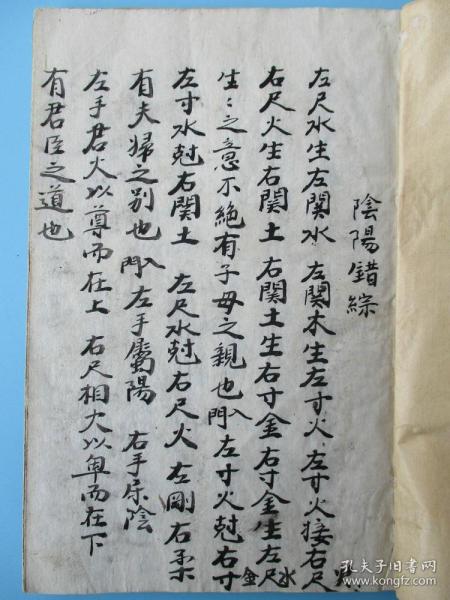 陰陽錯綜
左尺水生左関水 左関木生左寸火 左寸火接右尺火
右尺火生右関土 右関土生右寸金 右寸金生左尺水
生〻之意不絶有子母之親也 左寸火尅右寸金
左寸水尅右関土 左尺水尅右尺火 左剛右柔
有夫婦之别也 左手屬陽 右手屬陰
左手君火以尊而在上 右尺相火以卑而在下
有君臣之道也
孔夫子旧书网